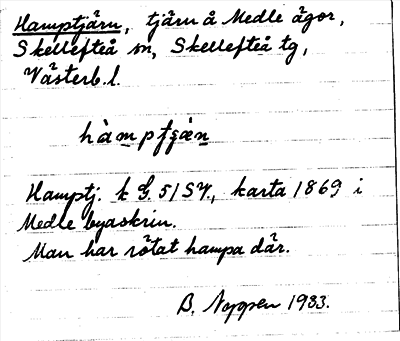 Hamptjärn, tjärn å Medle ägor,
Skellefteå sn, Skellefteå tg,
Västerb. l.
Hamptj. k G. 51 SV., karta 1869 i
Medle byaskrin.
Man har rötat hampa där.
B. Nygren 1933.